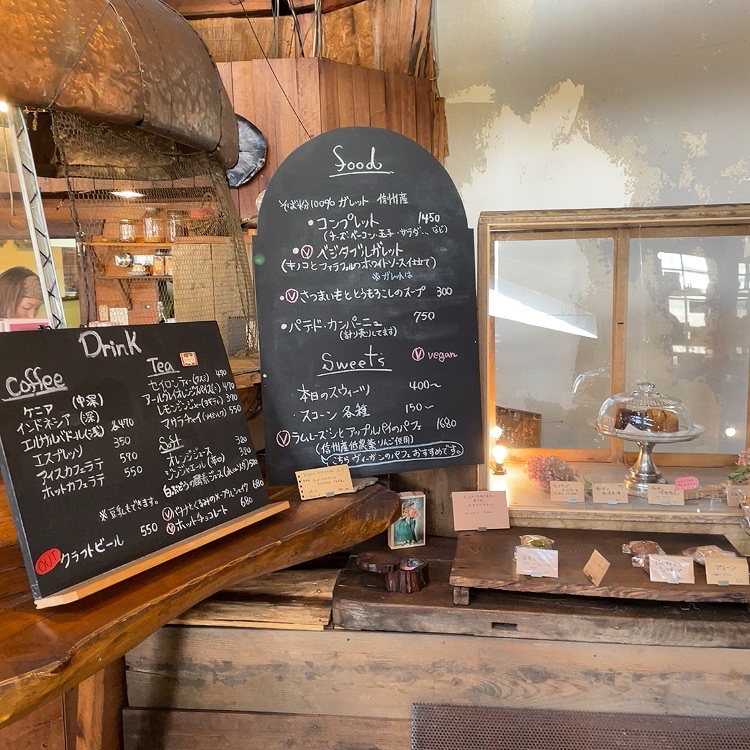 food
そば粉100% ガレット 信州産
・コンプレット 1450
(チーズ・ベーコン・玉子・サラダ、、など)
・Ⓥベジタブルガレット
(キノコとファラフェルのホワイトソース仕立て)
・Ⓥさつまいもととうもろこしのスープ 300
・パテド・カンパーニュ 750
(計り売りしてます)
Sweets
Ⓥ vegan
・本日のスウィーツ 400〜
・スコーン 各種 150〜
Ⓥラムレーズンとアップルパイのパフェ 1680
(信州産低農薬りんご使用)
こちらヴィーガンのパフェおすすめです。
Drink
Coffee
ケニア (中深)
インドネシア (深)
エルサルバドール(浅) 各470
エスプレッソ 350
アイスカフェラテ 570
ホットカフェラテ 550
※豆乳もできます。
OUT クラフトビール 550
Tea
セイロンティ 470
アールグレイ 470
レモンジンジャー 470
マサラチャイ 550
Soft
オレンジジュース
ジンジャエール(辛口)
Ⓥバナナとくるみのスムージー 680
Ⓥホットチョコレート 680